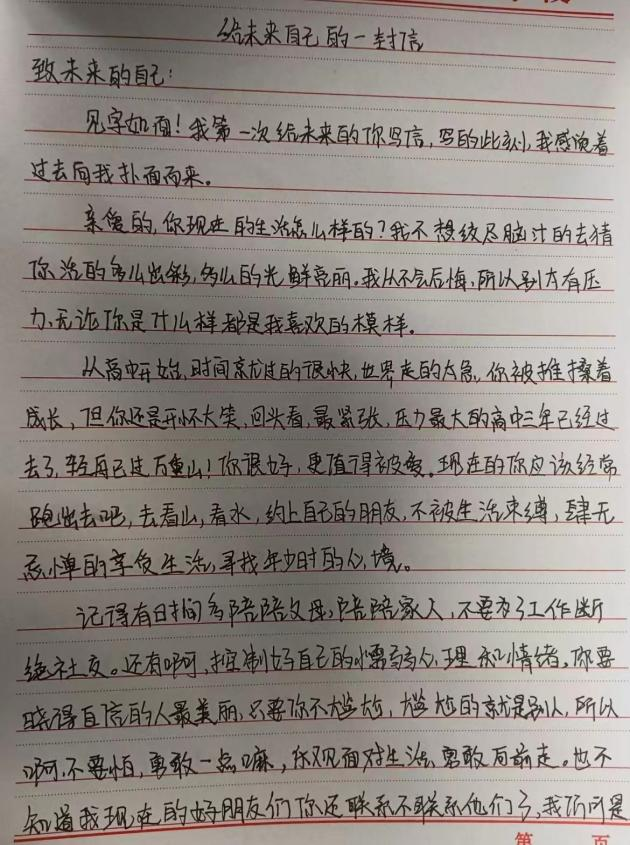 给未来自己的一封信
致未来的自己：
见字如面！我第一次给未来的你写信，写的此刻，我感觉着
过去向我扑面而来。
亲爱的，你现在的生活怎么样的？我不想绞尽脑汁的去猜
你活的多么出彩，多么的光鲜亮丽。我从不会后悔，所以别太有压
力，无论你是什么样都是我喜欢的模样。
从高中开始，时间就过的很快，世界走的太急，你被推搡着
成长，但你还是开怀大笑，回头看，最紧张，压力最大的高中三年已经过
去了，轻舟已过万重山！你很好，更值得被爱。现在的你应该经常
跑出去吧，去看山，看水，约上自己的朋友，不被生活束缚，肆无
忌惮的享受生活，寻找年少时的心境。
记得有时间多陪陪父母，陪陪家人，不要为了工作断
绝社交。还有啊，控制好自己的心理和情绪。你要
晓得自信的人最美丽，只要你不尴尬，尴尬的就是别人，所以
啊，不要怕，勇敢一点嘛，乐观面对生活，勇敢向前走。也不
知道我现在的好朋友们你还联系不联系他们了，我们可是
第 页